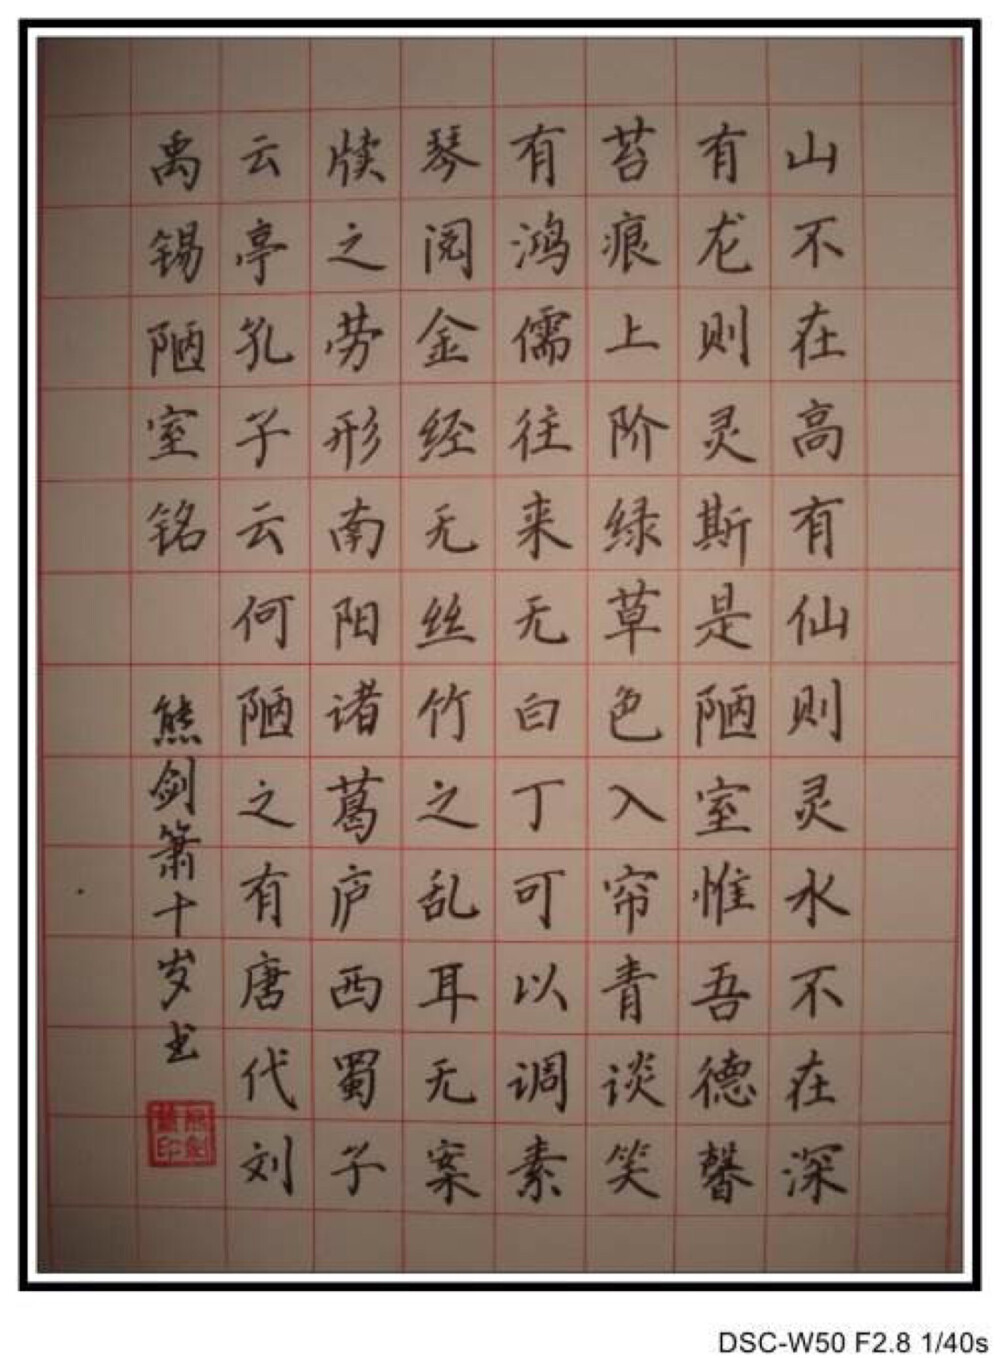 山不在高有仙则灵水不在深
有龙则灵斯是陋室惟吾德馨
苔痕上阶绿草色入帘青谈笑
有鸿儒往来无白丁可以调素
琴阅金经无丝竹之乱耳无案
牍之劳形南阳诸葛庐西蜀子
云亭孔子云何陋之有唐代刘
禹锡陋室铭
熊剑箫十岁书
DSC-W50 F2.8 1/40s